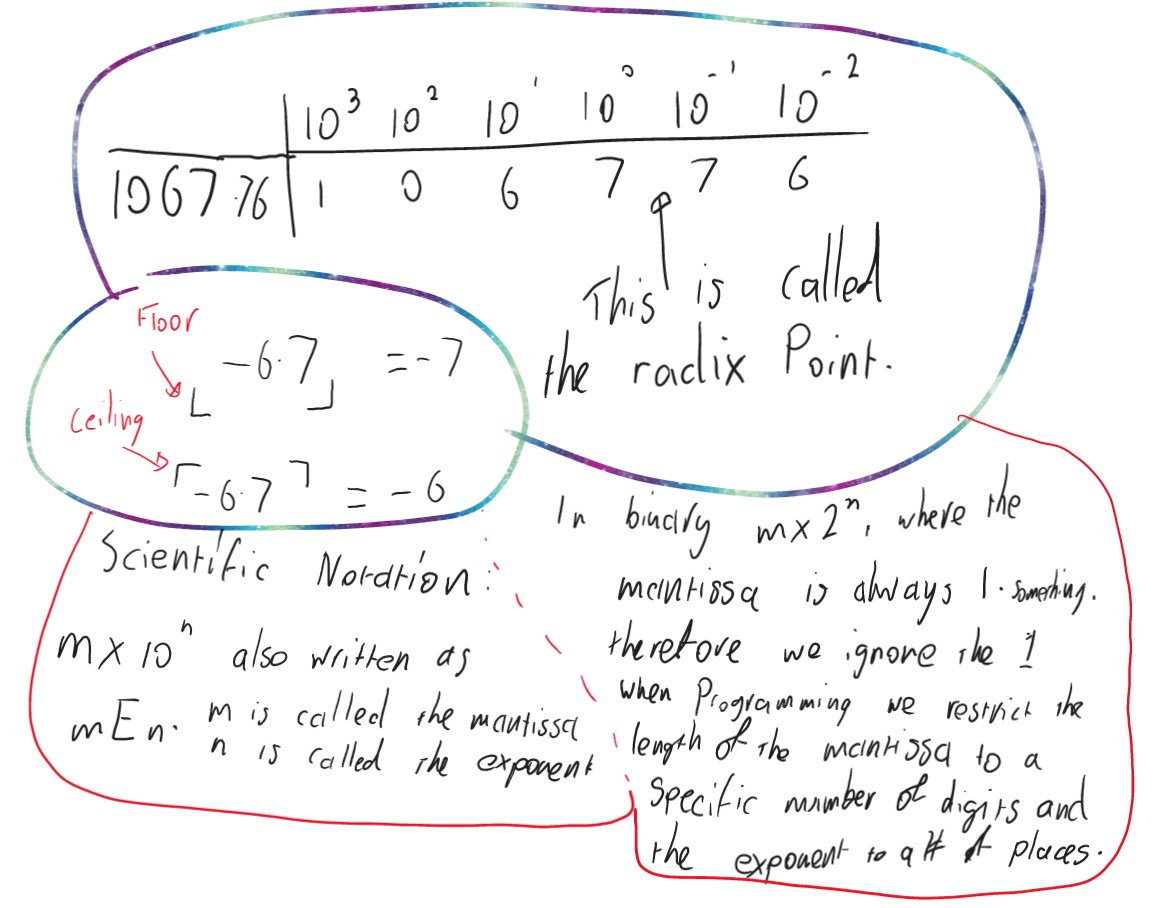 10³ 10² 10¹ 10⁰ 10⁻¹ 10⁻²
1067.76 1 0 6 7 7 6
This is called
the radix Point.
Floor
⌊ -6.7 ⌋ = -7
Ceiling
⌈ -6.7 ⌉ = -6
Scientific Notation:
m x 10ⁿ also written as
mEn. m is called the mantissa
n is called the exponent
In binary m x 2ⁿ, where the
mantissa is always 1.something.
therefore we ignore the 1
when Programming we restrict the
length of the mantissa to a
specific number of digits and
the exponent to a # of places.